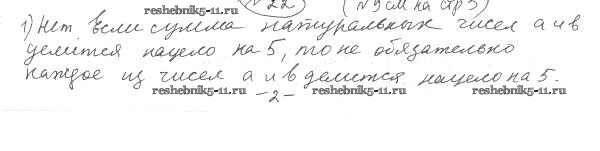 № 22 (№ 9 см на стр 3)
1) Нет. Если сумма натуральных чисел а и в
делится нацело на 5, то не обязательно
каждое из чисел а и в делится нацело на 5.
reshebnik5-11.ru
reshebnik5-11.ru
reshebnik5-11.ru
reshebnik5-11.ru
reshebnik5-11.ru
-2-